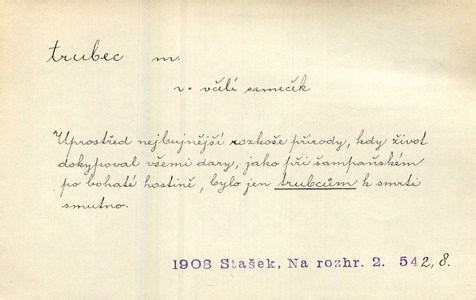 trubec m.
v. včelí sameček
Uprostřed nejbujnější rozkoše přírody, kdy život
dokypoval všemi dary, jako při šampaňském
po bohaté hostině, bylo jen trubcům k smrti
smutno.
1908 Stašek, Na rozhr. 2. 542,8.